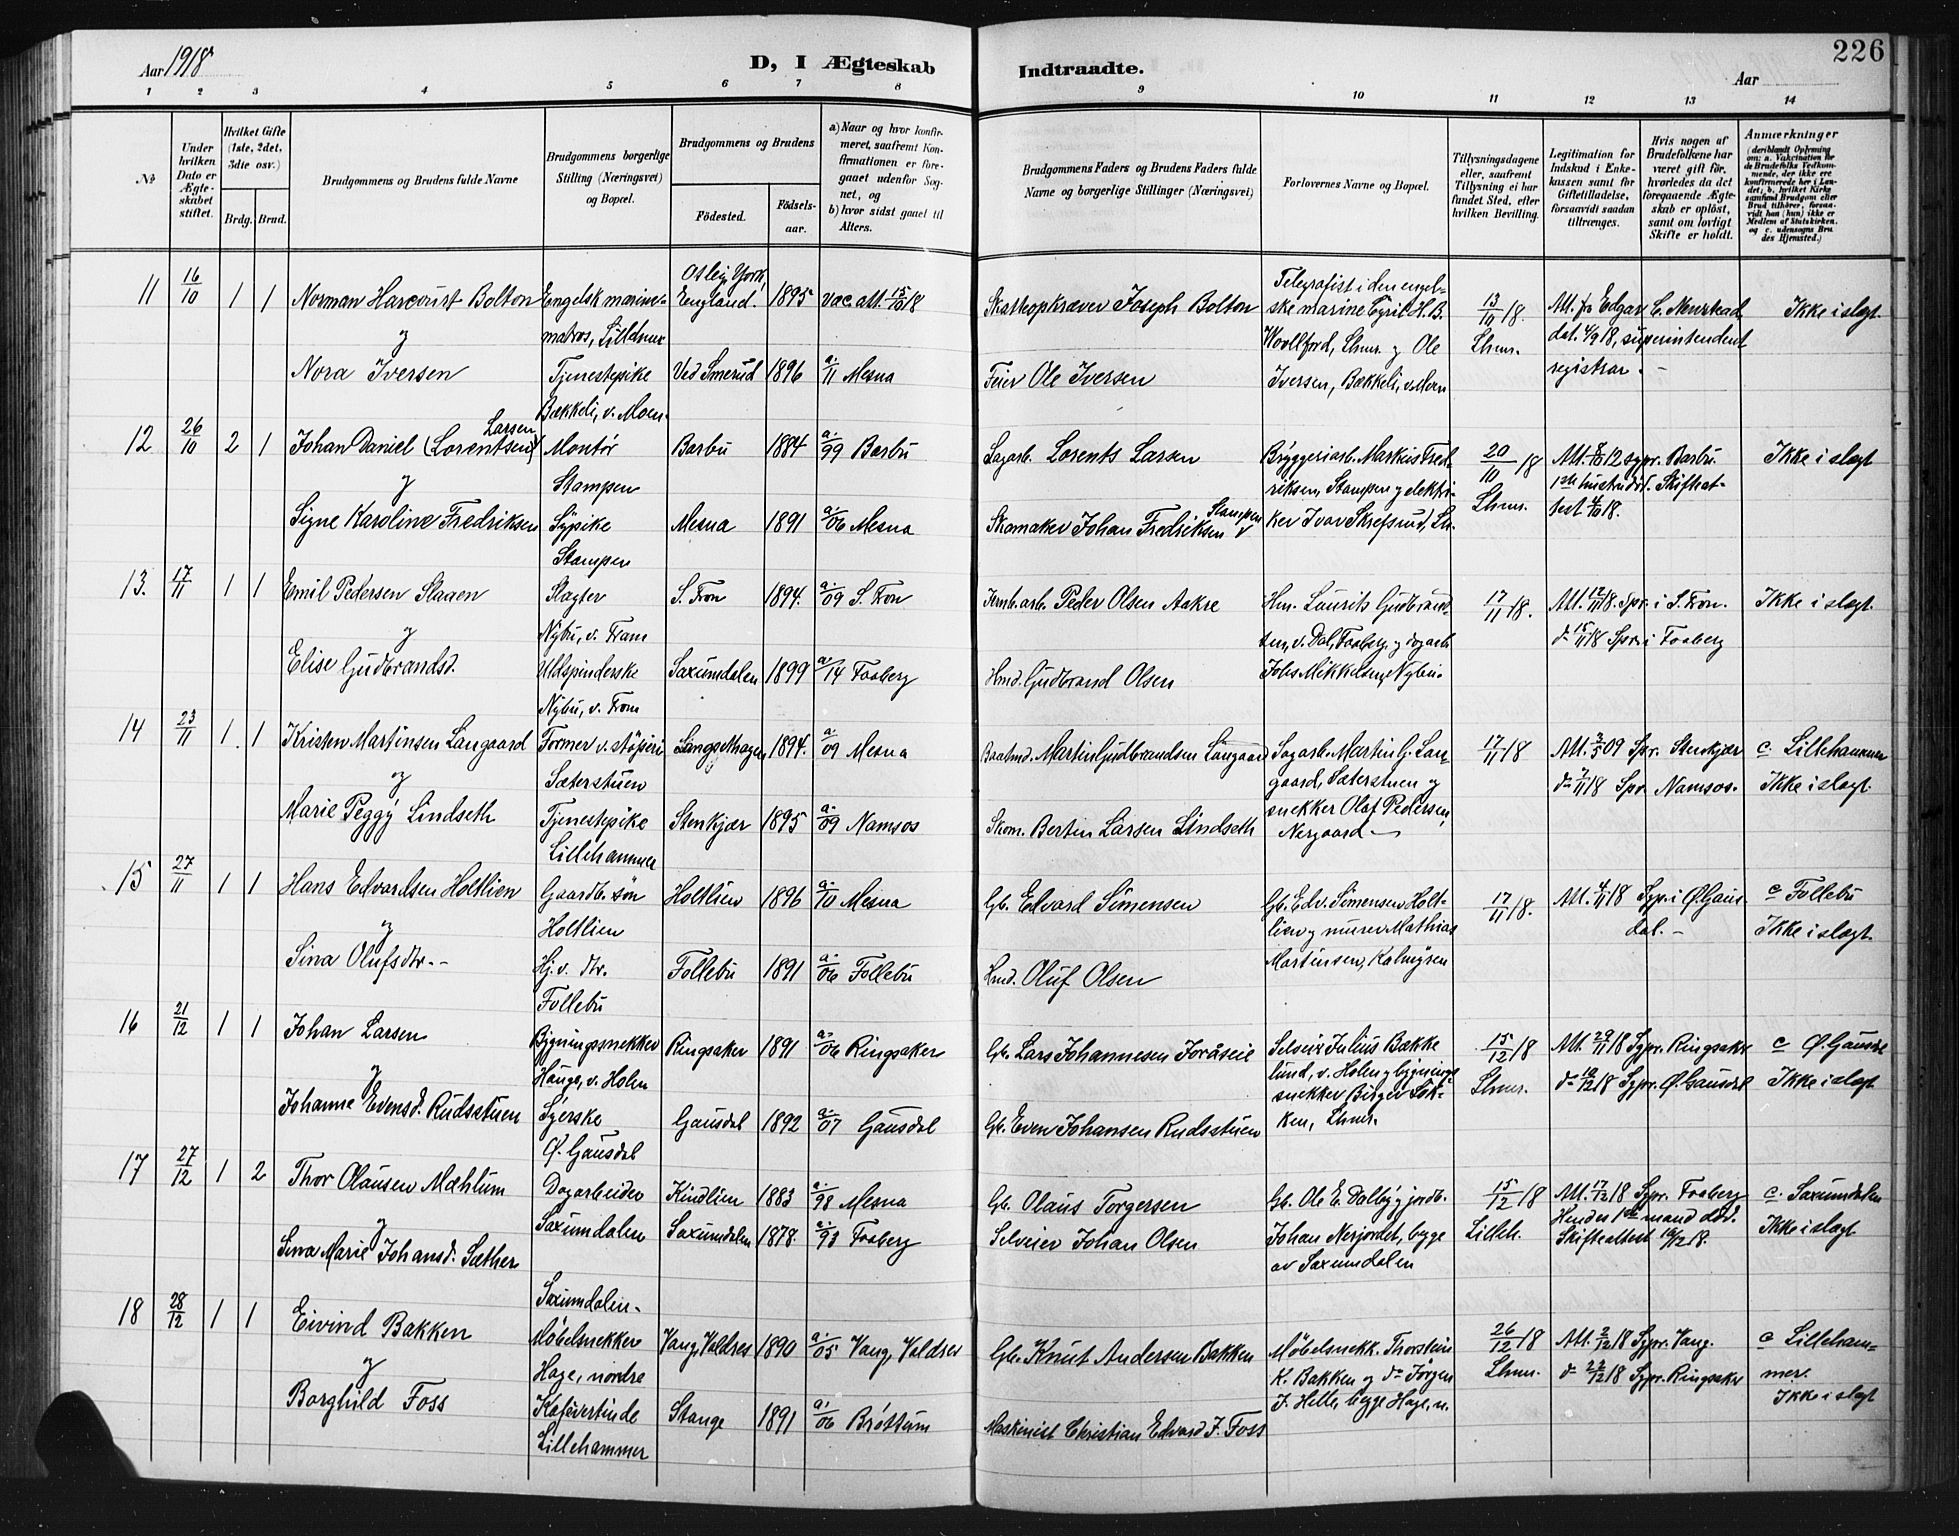 226
Aar 1918
D, I Ægteskab Indtraadte.
Aar
1 2 3 4 5 6 7 8 9 10 11 12 13 14
№
Under hvilken Dato er Ægteskabet stiftet.
Hvilket Gifte (1ste, 2det, 3dte osv.)
Brdg. Brud.
Brudgommens og Brudens fulde Navne
Brudgommens borgerlige Stilling (Næringsvei) og Bopæl.
Brudgommens og Brudens
Födested.
Födselsaar.
a) Naar og hvor konfirmeret, saafremt Konfirmationen er foregaaet udenfor Sognet, og
b) hvor sidst gaaet til Alters.
Brudgommens Faders og Brudens Faders fulde Navne og borgerlige Stillinger (Næringsvei)
Forlovernes Navne og Bopæl.
Tillysningsdagene eller, saafremt Tillysning ei har fundet Sted, efter hvilken Bevilling.
Legitimation for Indskud i Enkekassen samt for Giftetilladelse, forsaavidt saadan tiltrænges.
Hvis nogen af Brudefolkene har været gift för, hvorledes da det foregaaende Ægteskab er oplöst, samt om lovligt Skifte er holdt.
Anmærkninger (deriblandt Oplysning om: a. Vakcination for de Brudefolks Vedkommende, der ikke ere konfirmerede her i Landet; b. hvilket Kirkesamfund Brudgom eller Brud tilhörer, forsaavidt han (hun) ikke er Medlem af Statskirken, og c. udensogns Brudes Hjemsted.)
11 16/10 1 1 Norman Harcourt Bolton Engelsk marinematros, Lillehmr Otley York, England. 1895 vac. att. 15/10 18 Skatteopkræver Joseph Bolton Telegrafist i den engelske marine Cyril H.B. Woollford, Lhmr. y Ole Iversen, Bækkeli, v. Moen 13/10 18. Lhmr. Att. fr Edgar C. Newstead, dat. 4/9 18, superintendent registrar. - Ikke i slegt.
y
Nora Iversen Tjenestepike Bækkeli, v. Moen. Ved Smerud 1896 a. 11 Mesna Feier Ole Iversen
12 26/10 2 1 Johan Daniel (Lorentsen) Larsen Montør Stampen Barbu 1884 a. 99 Barbu Sagarb. Lorents Larsen Bryggeriarb. Markus Fredriksen, Stampen y elektriker Ivar Skrefsrud, Lh. 20/10 18 Lhmr. Att. 8/10 12 sgpr. Barbu. 1ste hustru d. Skifteattest 4/10 18. Ikke i slegt
y
Signe Karoline Fredriksen Sypike Stampen Mesna 1891 a. 06 Mesna Skomaker Johan Fredriksen Stampen
13. 17/11 1 1 Emil Pedersen Slaaen Slagter Nybu, v. Fram S. Fron 1894. a. 09 S. Fron Jernb. arb. Peder Olsen Aakre Hm. Laurits Gudbrandsen, v. Dal, Faaberg, y dagarb. Johs Mikkelsen, Nybu. 17/11 18. Att. 12/11 18. Spr. i S. Fron. do 15/11 18 Spr. i Faaberg Ikke i slegt.
y
Elise Gudbrandsd. Uldspinderske Nybu, v. Fram Saxumdalen 1899 a. 14 Faaberg Hmd. Gudbrand Olsen
14 23/11 1 1 Kristen Martinsen Langaard Former v. støperi Sæterstuen Langsethagen 1894. a. 09 Mesna Baatmd. Martin Gudbrandsen Langaard Sagarb. Martin G. Langaard, Sæterstuen y snekker Olaf Pedersen, Nergaard 17/11 18 Att. 3/5 09 Spr. Stenkjær do 7/11 18 Spr. Namsos. c. Lillehammer Ikke i slegt.
y
Marie Peggy Lindseth Tjenestepike Lillehammer Stenkjær 1895 a. 09 Namsos Skom. Bertin Larsen Lindseth
15 27/11 1 1 Hans Edvardsen Holtlien Gaardb. søn Holtlien Holtlien 1896 a. 10 Mesna Gb. Edvard Simensen Gb. Edv. Simensen Holtlien y murer Mathias Martinsen, Kalmyren 17/11 18. Att. 4/11 18 Sgpr. i Ø. Gausdal. - c Follebu Ikke i slegt.
y
Sina Olufsdtr. - Hj. v. dtr. Follebu Follebu 1891 a. 06 Follebu Hmd. Oluf Olsen
16 21/12 1 1 Johan Larsen Bygningssnekker Hauge, v. Holen Ringsaker 1891 a. 06 Ringsaker Gb. Lars Johannesen Joråseie Selveier Julius Bækkelund, v. Holen y bygningssnekker Birger Løkken, Lhmr. 15/12 18 Lhmr. Att. 29/11 18 Sgpr. Ringsaker do 10/12 18 Sgpr. Ø. Gausdal c Ø. Gausdal Ikke i slegt
y
Johanne Evensd. Rudsstuen Syerske Ø. Gausdal Gausdal 1892 a. 07 Gausdal Gb. Even Johansen Rudsstuen
17 27/12 1 2 Thor Olausen Mæhlum Dagarbeider Saxumdalen Kindlien 1883 a. 98 Mesna Gb. Olaus Torgersen Gb. Ole E. Dalby y jordb. Johan Nerjordet, begge av Saxumdalen 15/12 18 Lilleh. Att. 17/12 18 Sgpr. Faaberg Hendes 1ste mand død. Skifteattest 16/12 18. c. Saxumdalen Ikke i slegt
y
Sina Marie Johansd. Sæther Saxumdalen. Saxumdalen 1878. a. 93 Faaberg Selveier Johan Olsen
18 28/12 1 1 Eivind Bakken Møbelsnekker Hage, nordre Vang, Valdres 1890 a. 05 Vang, Valdres Gb. Knut Andersen Bakken Møbelsnekk. Thorstein K. Bakken y do Jørgen J. Helle, begge Hage, n. 26/12 18 Lhmr. Att. 2/12 18 Sgpr. Vang. do 22/12 18 Sgpr. Ringsaker c Lillehammer. Ikke i slegt
y
Borghild Foss Kafévertinde Lillehammer Stange 1891 a. 06 Brøttum Maskinist Christian Edvard J. Foss